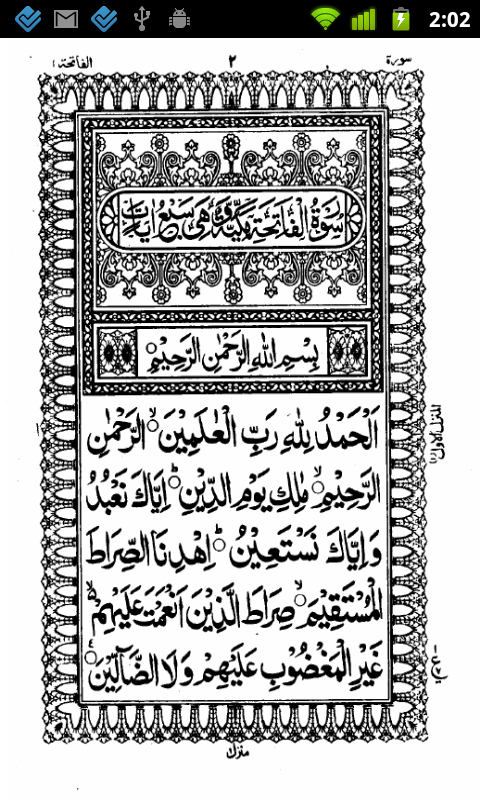 2:02
سورة ٢ الفاتحة ١
سُوْرَةُ الْفَاتِحَةِ مَكِّيَّةٌ وَّهِيَ سَبْعُ اٰيَاتٍ
بِسْمِ اللّٰهِ الرَّحْمٰنِ الرَّحِيْمِ
اَلْحَمْدُ لِلّٰهِ رَبِّ الْعٰلَمِيْنَ ۙ الرَّحْمٰنِ
الرَّحِيْمِ ۙ مٰلِكِ يَوْمِ الدِّيْنِ ؕ اِيَّاكَ نَعْبُدُ
وَاِيَّاكَ نَسْتَعِيْنُ ؕ اِهْدِنَا الصِّرَاطَ
الْمُسْتَقِيْمَ ۙ صِرَاطَ الَّذِيْنَ اَنْعَمْتَ عَلَيْهِمْ ۙ
غَيْرِ الْمَغْضُوْبِ عَلَيْهِمْ وَلَا الضَّآلِّيْنَ
المنزل الاول ١
منزل